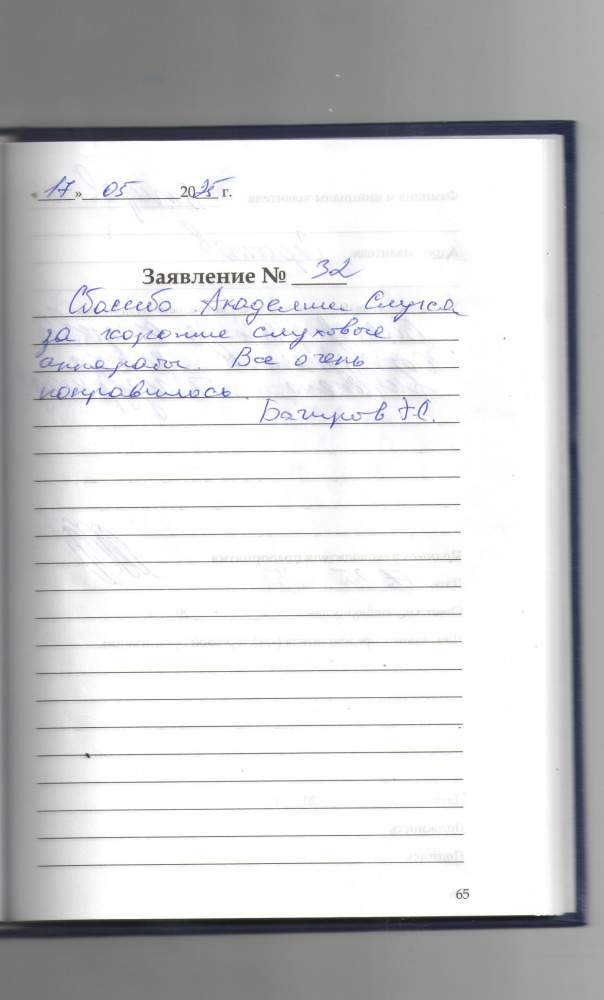 «17» 05 2025 г.
Заявление № 32
Спасибо Академии Слуха
за хорошие слуховые
аппараты. Все очень
понравилось.
Багиров Г.С.
65